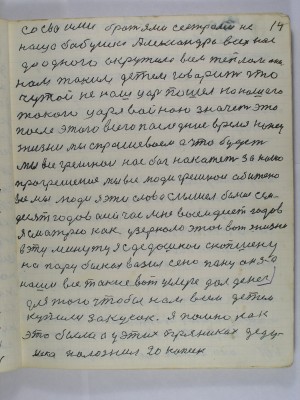 со сва ими братями сестрами но 14
наша бабушка Александра всех нас
до одного окружила всем теплом она
нам таким детям говарит что
чужой не наш цар пошел на нашего
такого царя вайною значет это
после этого всего последние время
жизни мы спрашиваем а что будет
мы все грешном нас бог накажет за наше
прегрешения мы все люди грешном
мы люди я это слово слышел было сем
десят годов а сичас мне восимдисет годов
я сматрю как узеркало этот вот жизне
в эту минуту я с дедошкои
на пару быках вазил сено пану
нашим все такие вот умере дал денег
для того чтобы нам всем детям
купили закусак. я помню как
это была а у этих пряниках деду-
шка положил 20 копеи